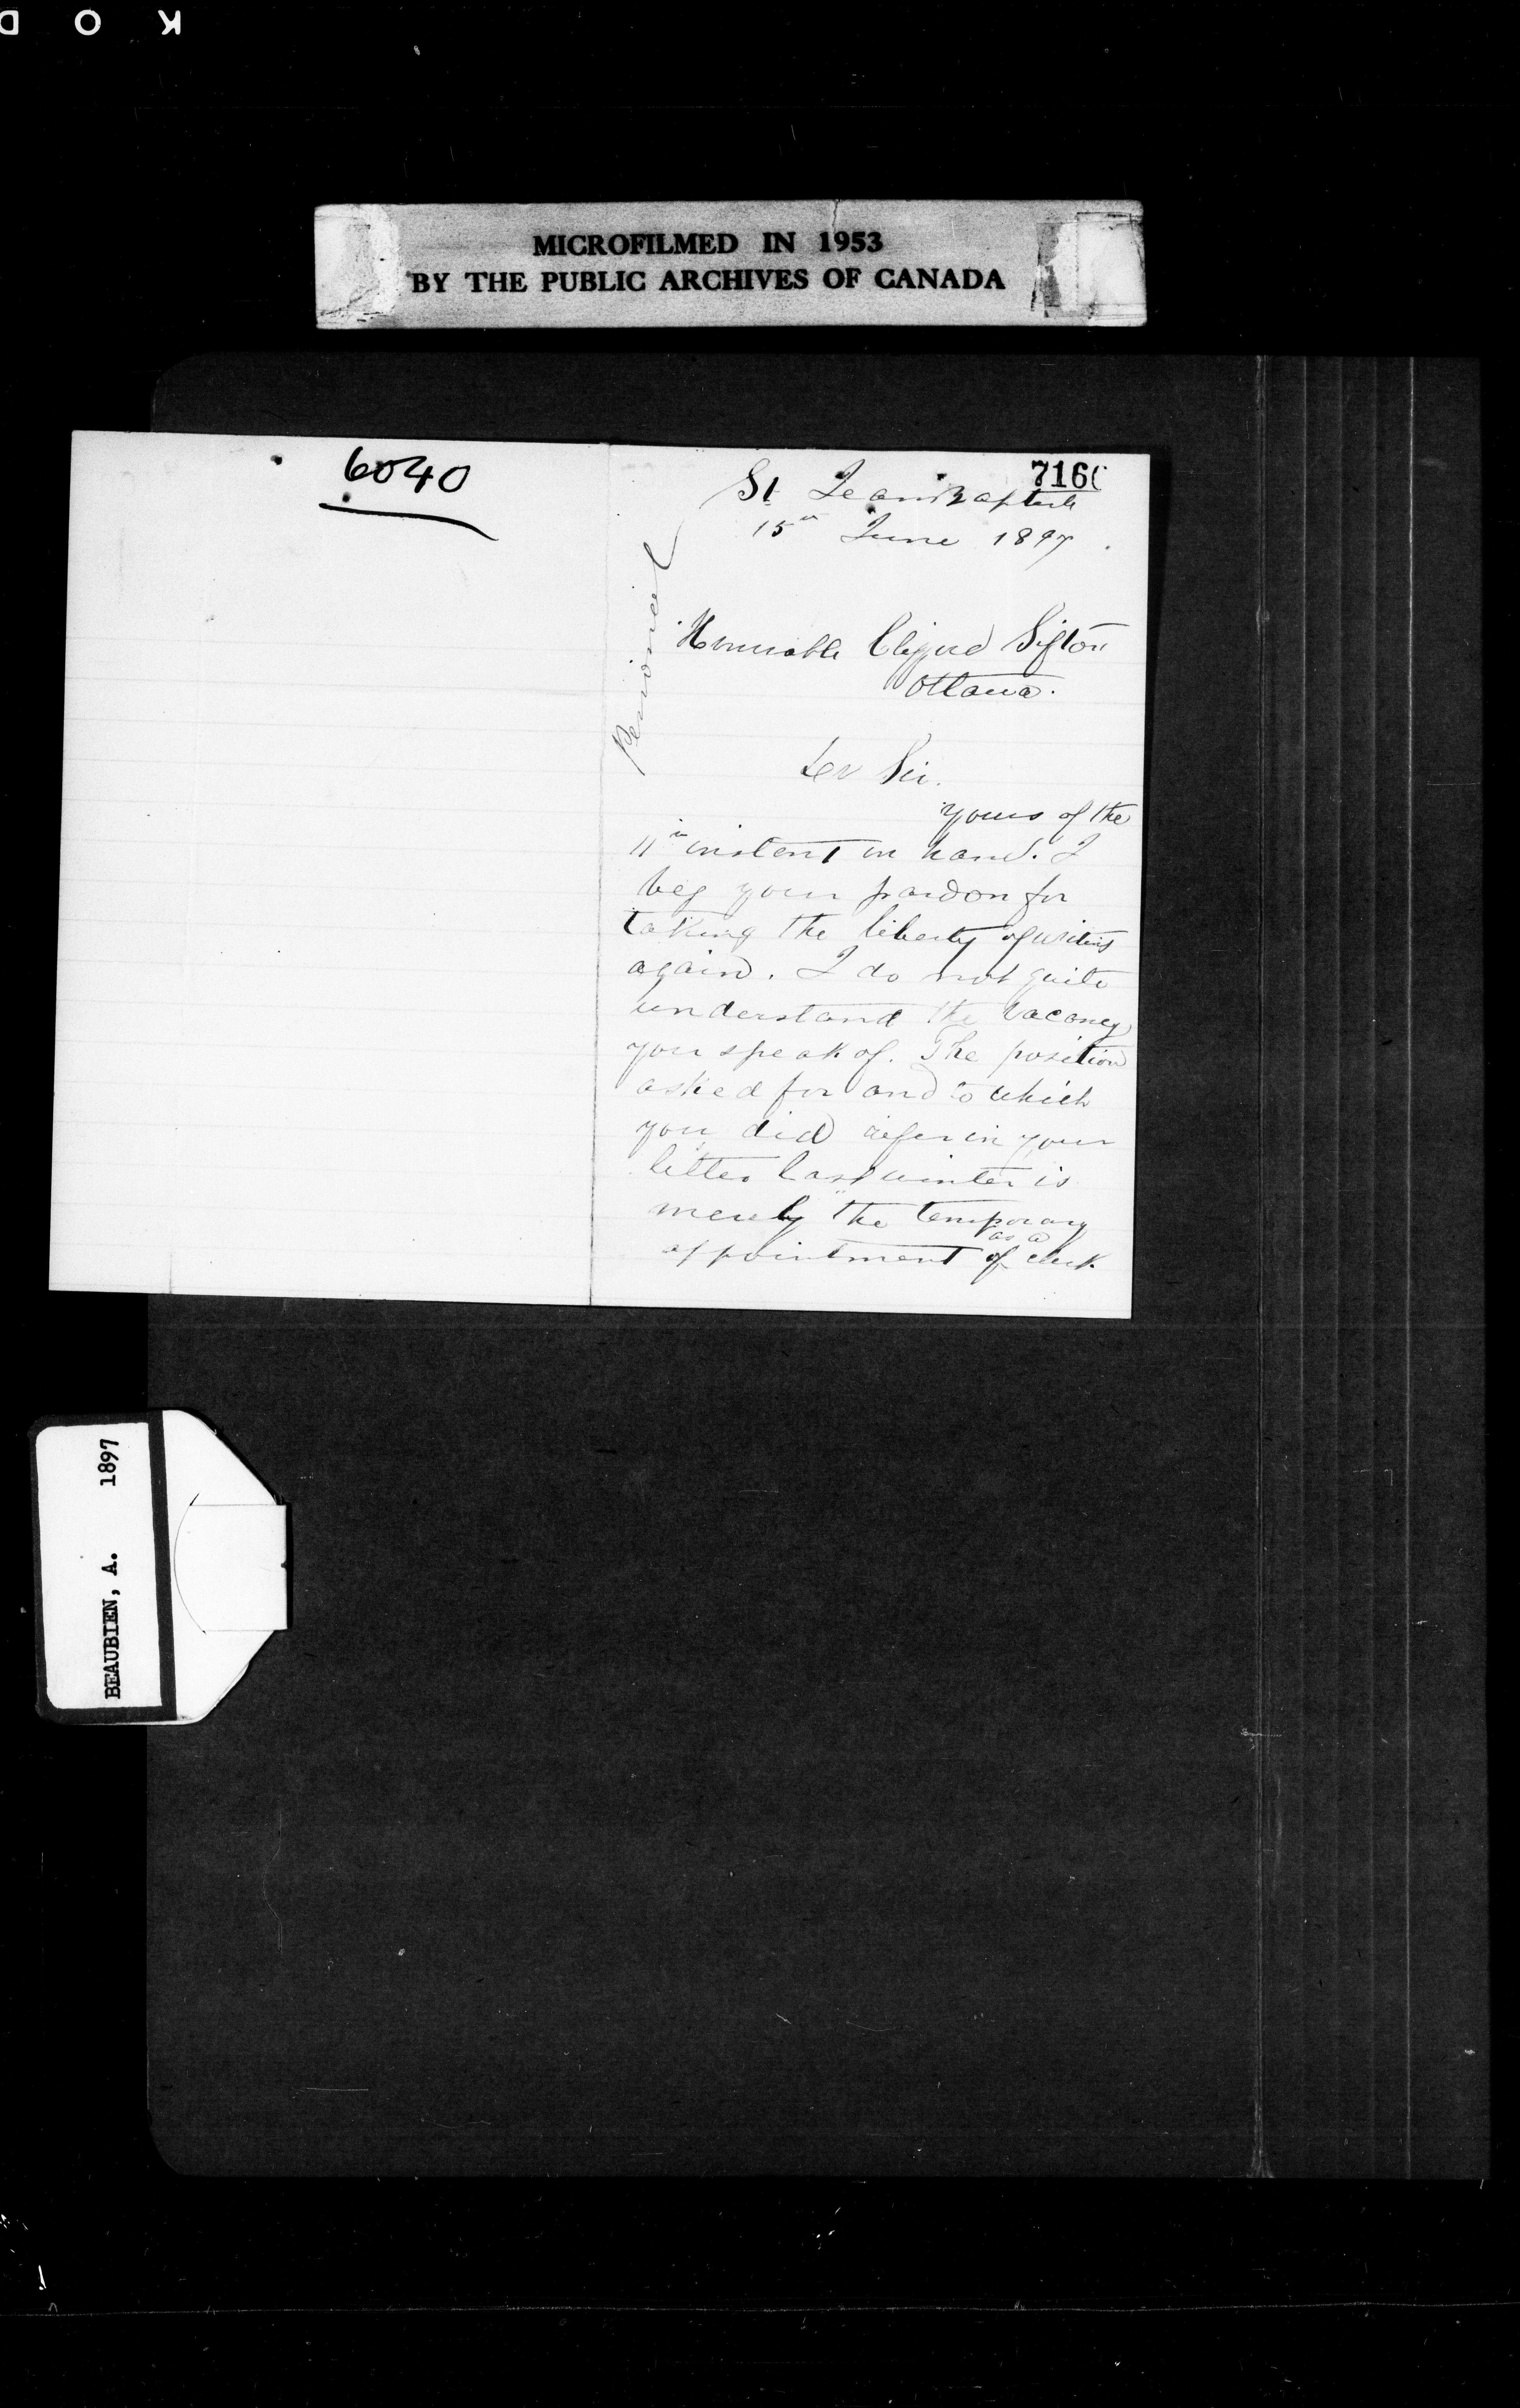 K O D
MICROFILMED IN 1953
BY THE PUBLIC ARCHIVES OF CANADA
6040
7160
St Jean Baptiste
15th June 1897.
Personal
Honorable Clifford Sifton
Ottawa.
Dr Sir.
Yours of the
11th instant in hand. I
beg your pardon for
taking the liberty of writing
again. I do not quite
understand the vacancy
you speak of. The position
asked for and to which
you did refer in your
letter last winter is
merely "the temporary
appointment of as a clerk
BEAUBIEN, A. 1897